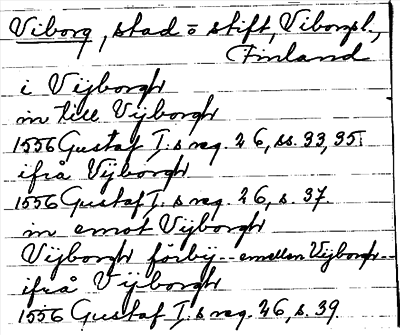 Viborg, stad o stift, Viborgsl.,
Finland
i Vijborgh
in till Vijborgh
1556 Gustaf I:s reg. 26, ss. 33, 35.
ifrå Vijborgh
1556 Gustaf I:s reg. 26, s. 37.
in emot Vijborgh
Vijborgh förbij -- emellan Vijborgh --
ifrå Vijborgh
1556 Gustaf I:s reg. 26, s. 39.